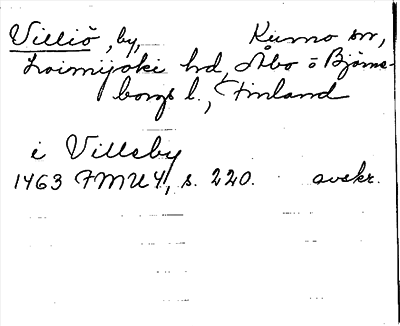 Villiö, by, Kumo sn,
Loimijoki hd, Åbo o Björne-
borgs l., Finland
i Villsby
1463 FMU 4, s. 220. avskr.